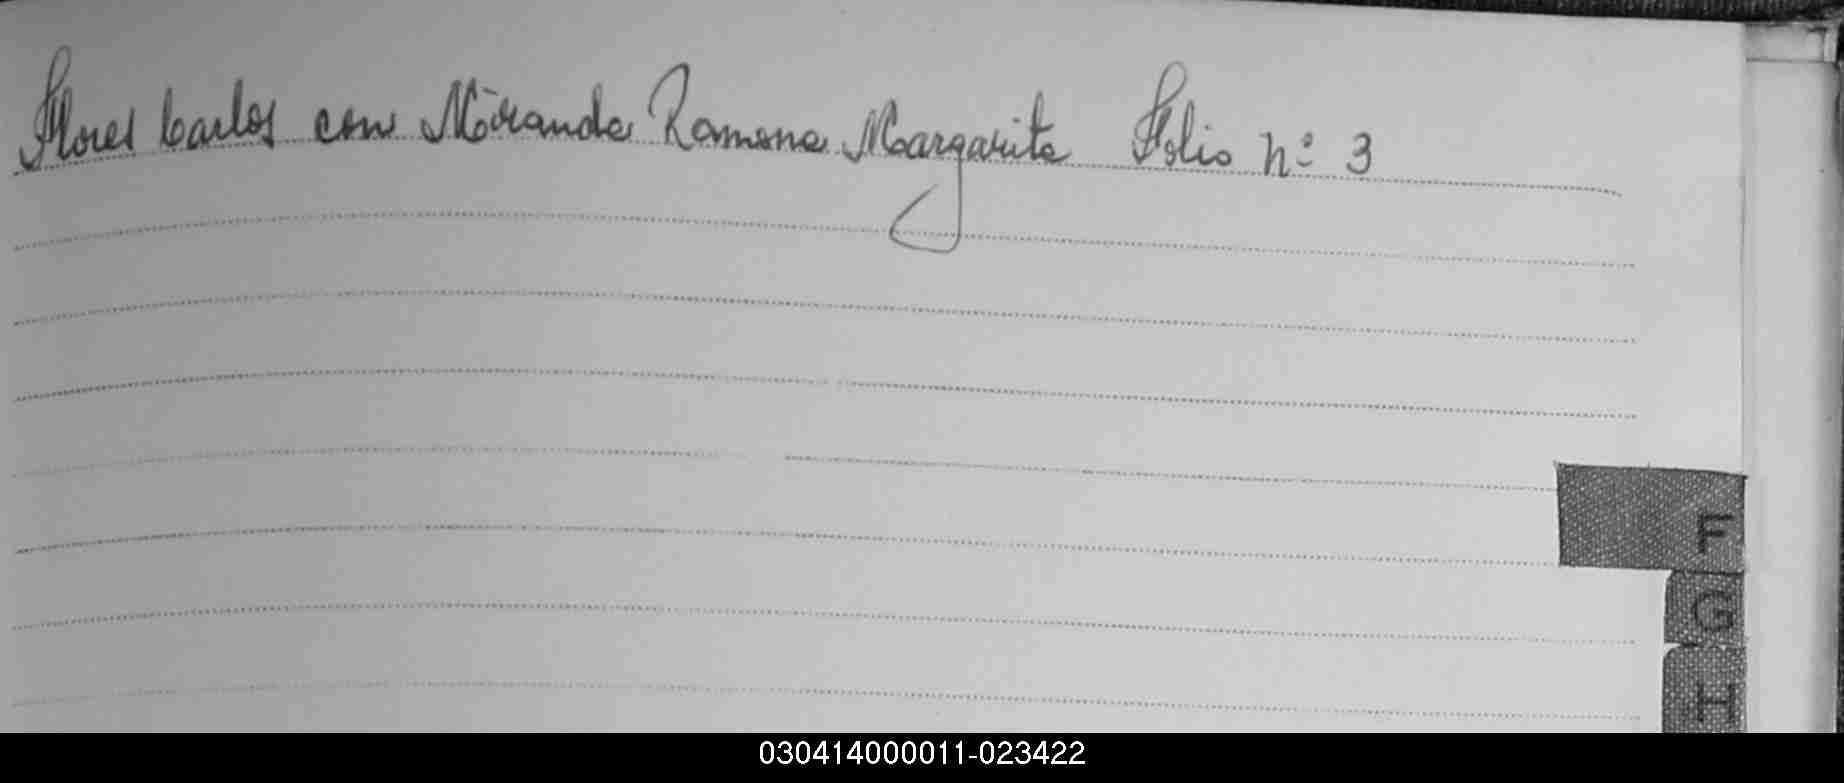 Flores Carlos con Miranda Ramona Margarita Folio nº 3
F
G
H
030414000011-023422